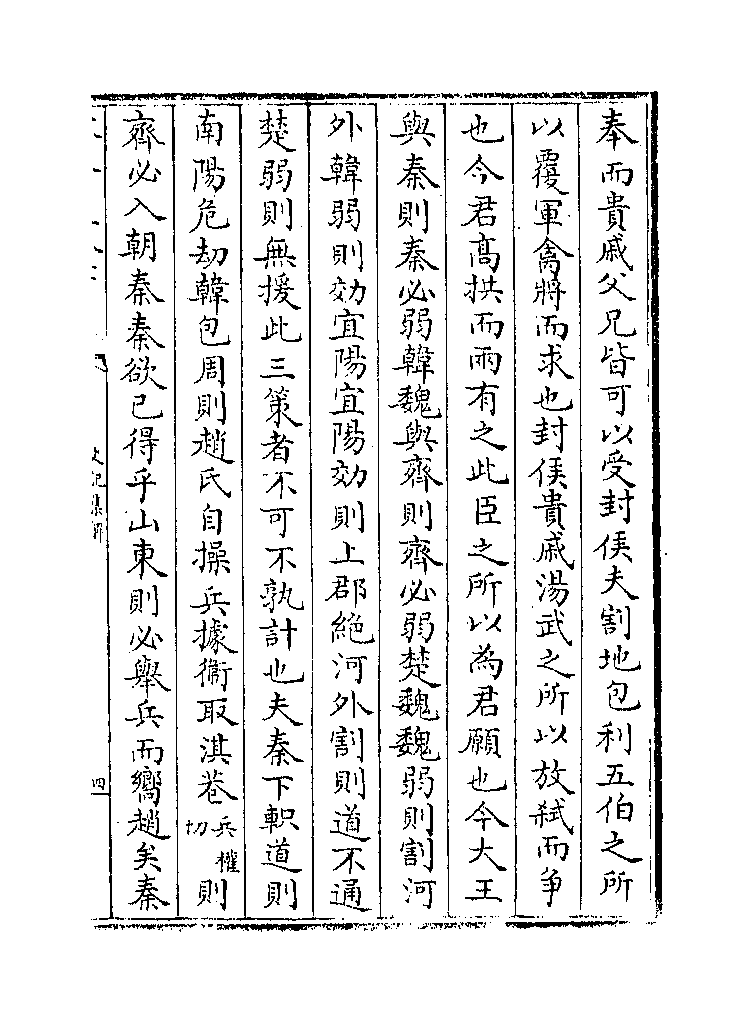 奉而貴戚父兄皆可以受封侯夫割地包利五伯之所
以覆軍禽將而求也封侯貴戚湯武之所以放弒而争
也今君髙拱而兩有之此臣之所以為君願也今大王
與秦則秦必弱韓魏與齊則齊必弱楚魏魏弱則割河
外韓弱則効宜陽宜陽効則上郡絶河外割則道不通
楚弱則無援此三策者不可不孰計也夫秦下軹道則
南陽危劫韓包周則趙氏自操兵據衞取淇巻兵權切則
齊必入朝秦秦欲已得乎山東則必舉兵而嚮趙矣秦
史記集解
四